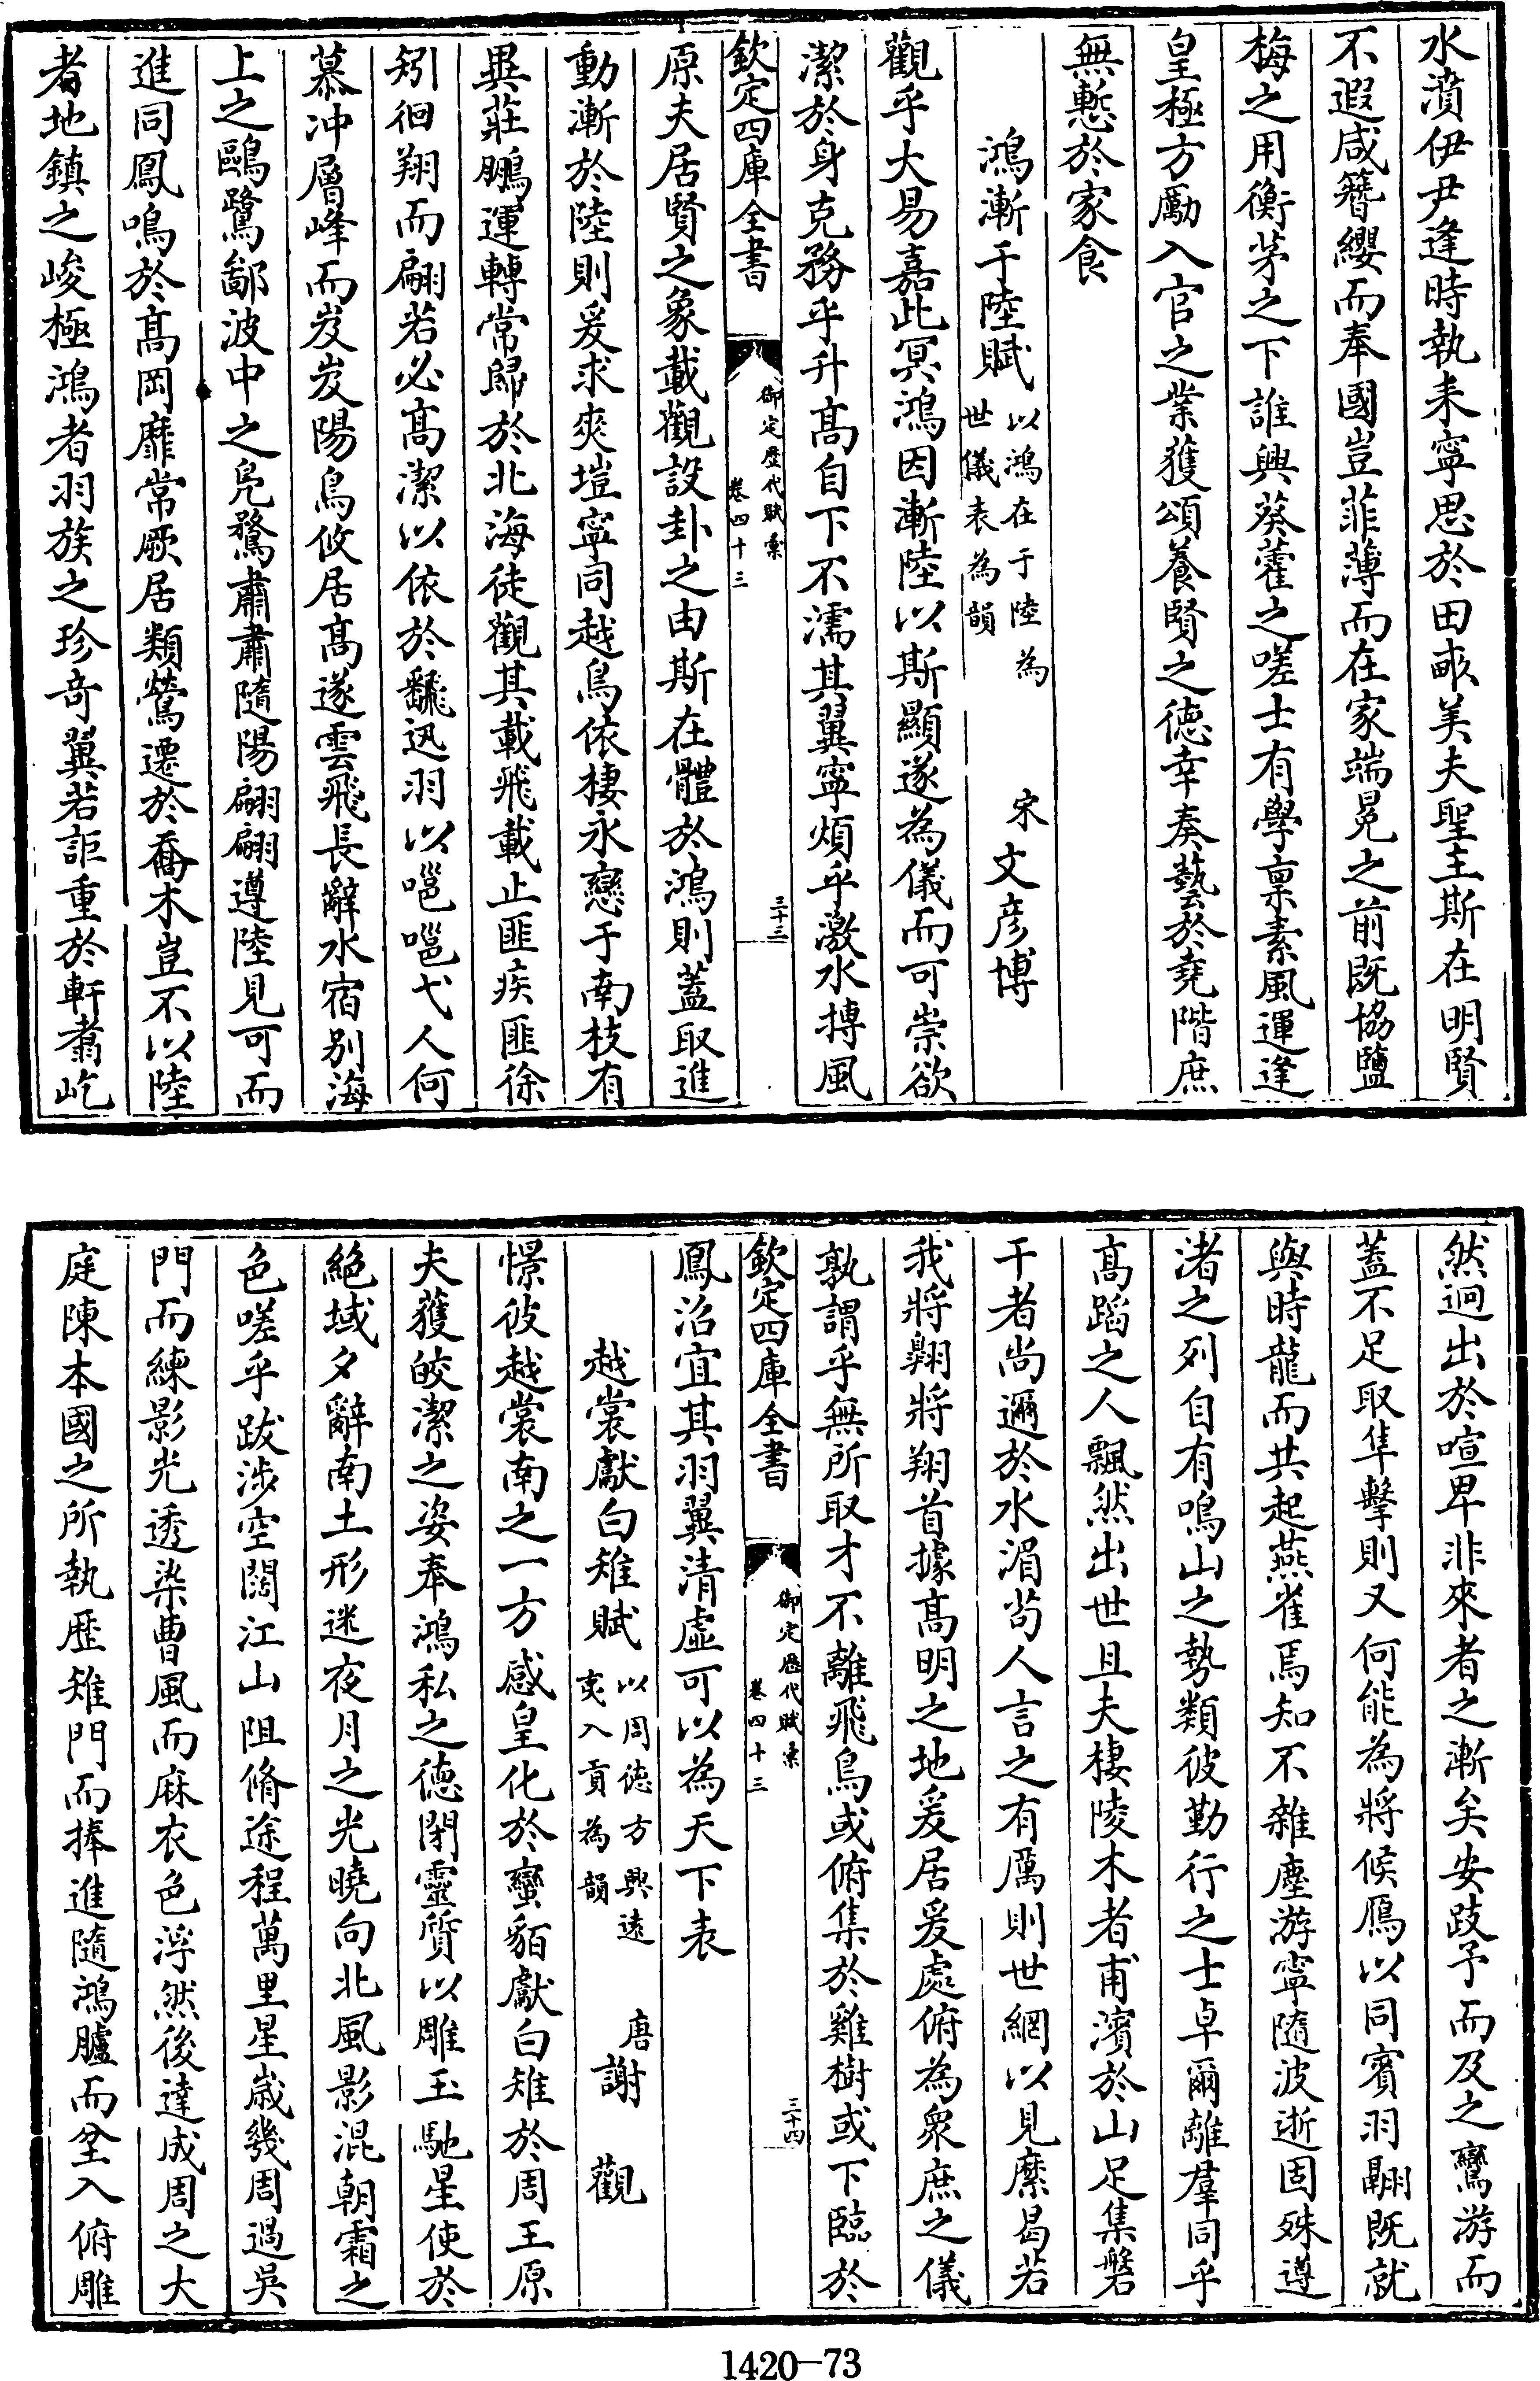 水濆伊尹逢時執耒寧思於田畝美夫聖主斯在明賢
不遐咸簪纓而奉國豈菲薄而在家端冕之前既協鹽
梅之用衡茅之下誰興葵藿之嗟士有學稟素風運逢
皇極方勵入官之業獲頌養賢之徳幸奏藝於堯階庶
無慙於家食
鴻漸于陸賦以鴻在于陸為世儀表為韻 宋文彦博
觀乎大易嘉此冥鴻因漸陸以斯顯遂為儀而可崇欲
潔於身克務乎升髙自下不濡其翼寧煩乎激水摶風
欽定四庫全書 御定歴代賦彚 卷四十三 三十三
原夫居賢之象載觀設卦之由斯在體於鴻則蓋取進
動漸於陸則爰求爽塏寧同越鳥依棲永戀于南枝有
異莊鵬運轉常歸於北海徒觀其載飛載止匪疾匪徐
矧徊翔而翩若必髙潔以依於翻迅羽以嗈嗈弋人何
慕冲層峰而岌岌陽鳥攸居髙遂雲飛長辭水宿别海
上之鷗鷺鄙波中之鳧鶩肅肅隨陽翩翩遵陸見可而
進同鳳鳴於髙岡靡常厥居類鶯遷於喬木豈不以陸
者地鎮之峻極鴻者羽族之珍竒翼若詎重於軒翥屹
然迥出於喧卑非來者之漸矣安跂予而及之鸞游而
蓋不足取隼擊則又何能為將候鴈以同賓羽翮既就
與時龍而共起燕雀焉知不雜塵游寧隨波逝固殊遵
渚之列自有鳴山之勢類彼勤行之士卓爾離羣同乎
髙蹈之人飄然出世且夫棲陵木者甫濱於山足集磐
干者尚邇於水湄茍人言之有厲則世網以見縻曷若
我將翺將翔首據髙明之地爰居爰處俯為衆庶之儀
孰謂乎無所取才不離飛鳥或俯集於雞樹或下臨於
欽定四庫全書 御定歴代賦彚 卷四十三 三十四
鳳沼宜其羽翼清虚可以為天下表
越裳獻白雉賦以周徳方興逺夷入貢為韻 唐謝觀
憬彼越裳南之一方感皇化於蠻貊獻白雉於周王原
夫獲皎潔之姿奉鴻私之徳閉靈質以雕玉馳星使於
絶域夕辭南土形迷夜月之光曉向北風影混朝霜之
色嗟乎跋涉空闊江山阻脩途程萬里星歲幾周過吳
門而練影光透染曹風而麻衣色浮然後達成周之大
庭陳本國之所執歴雉門而捧進隨鴻臚而坌入俯雕
1420—73